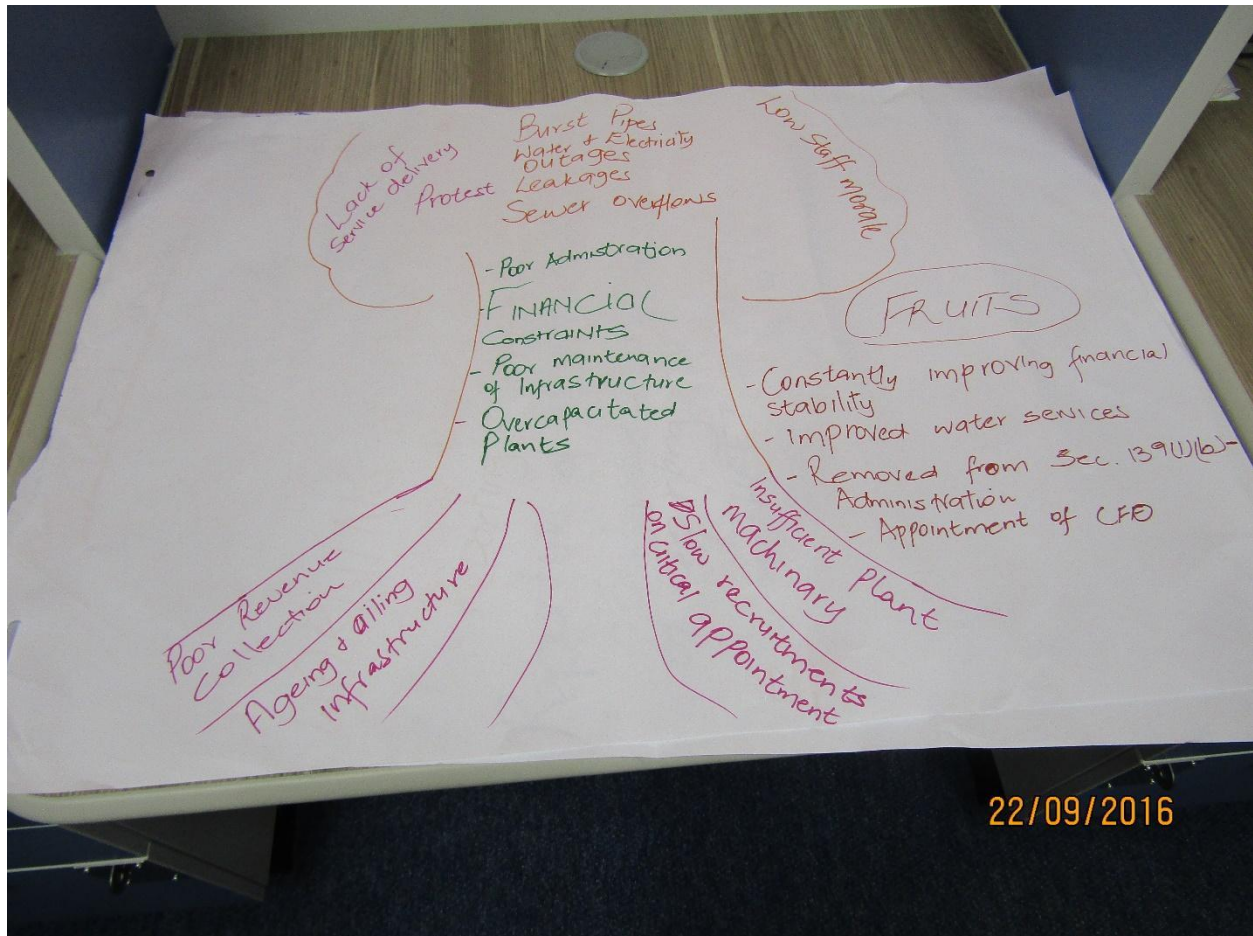 Lack of
service delivery
Protest
Burst Pipes
Water & Electricity
Outages
Leakages
Sewer overflows
Low Staff morale
- Poor Admistration
- FINANCIAL
Constraints
- Poor maintenance
of Infrastructure
- Overcapacitated
Plants
FRUITS
- Constantly improving financial
stability
- Improved water services
- Removed from Sec. 139(1)(b)-
Administration
- Appointment of CFO
Poor Revenue
Collection
Ageing & ailing
Infrastructure
Slow recruitments
on critical appointment
Insufficient plant
machinary
22/09/2016